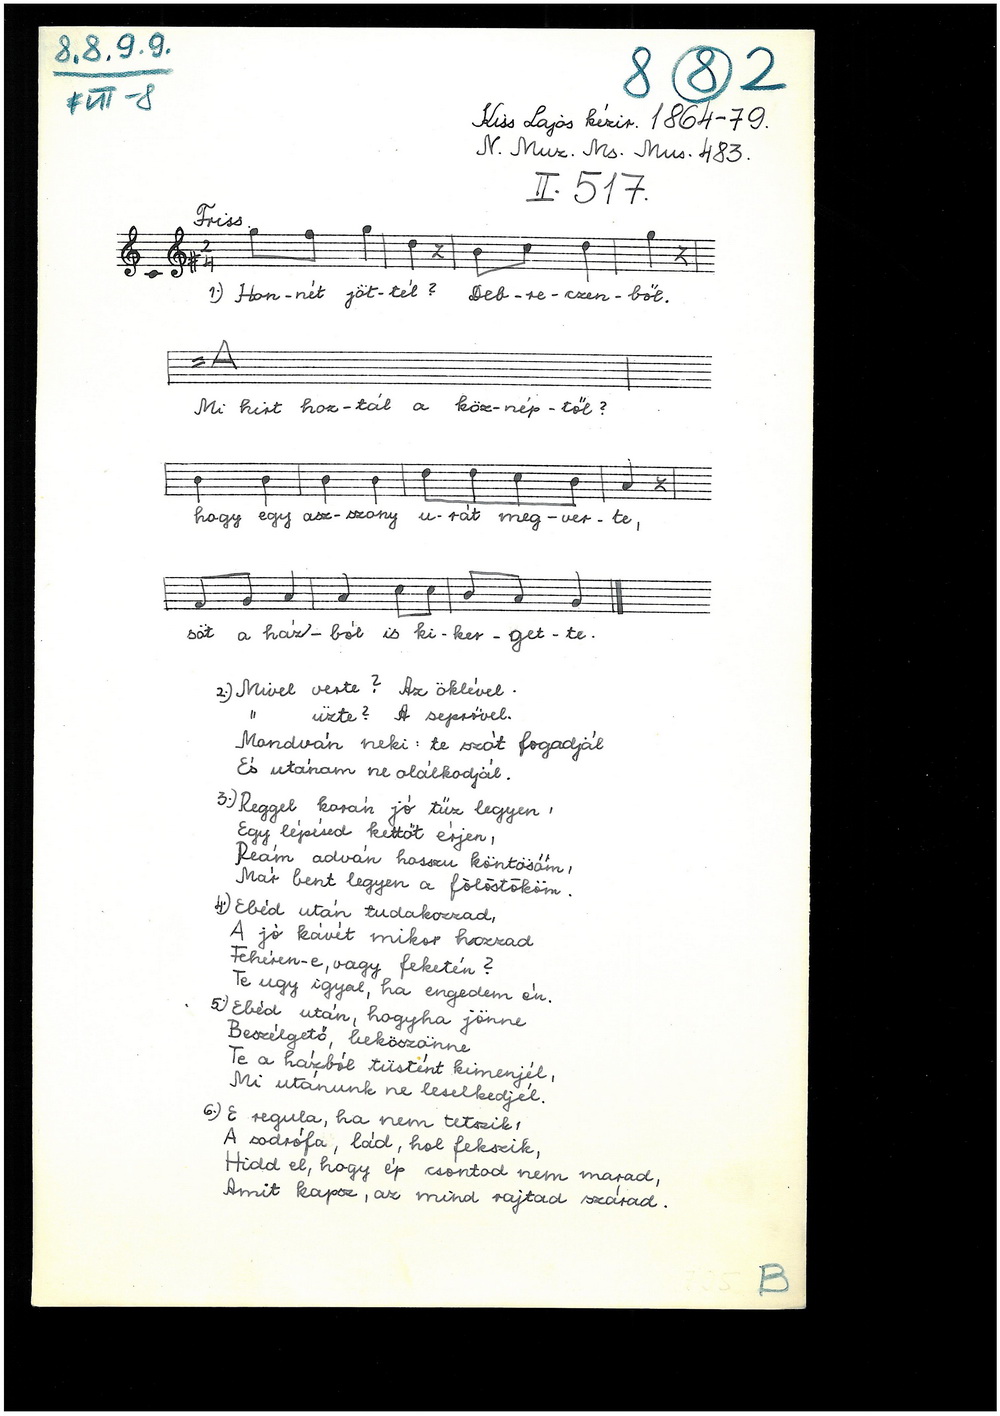 8.8.9.9.
VII-8
8 8 2
Kiss Lajos kézir. 1864-79.
N. Muz. Ms. Mus. 483.
II. 517.
Friss.
2
4
1.) Hon-nét jöt-tél? Deb-re-czen-ből.
= A
Mi hirt hoz-tál a köz-nép-től?
hogy egy asz-szony u-rát meg-ver-te,
sőt a ház-ból is ki-ker-get-te.
2.) Mivel verte? Az öklével.
" űzte? A seprővel.
Mondván neki: te szót fogadjál
És utánam ne olálkodjál.
3.) Reggel korán jó tűz legyen,
Egy lépésed kettőt érjen,
Reám adván hosszu köntösöm,
Már bent legyen a fölöstököm.
4.) Ebéd után tudakozzad,
A jó kávét mikor hozzad
Fehéren-e, vagy feketén?
Te ugy igyal, ha engedem én.
5.) Ebéd után, hogyha jönne
Beszélgető, beköszönne
Te a házból tüstént kimenjél,
Mi utánunk ne leselkedjél.
6.) E regula, ha nem tetszik,
A sodrófa, lád, hol fekszik,
Hidd el, hogy ép csontod nem marad,
Amit kapsz, az mind rajtad szárad.
B